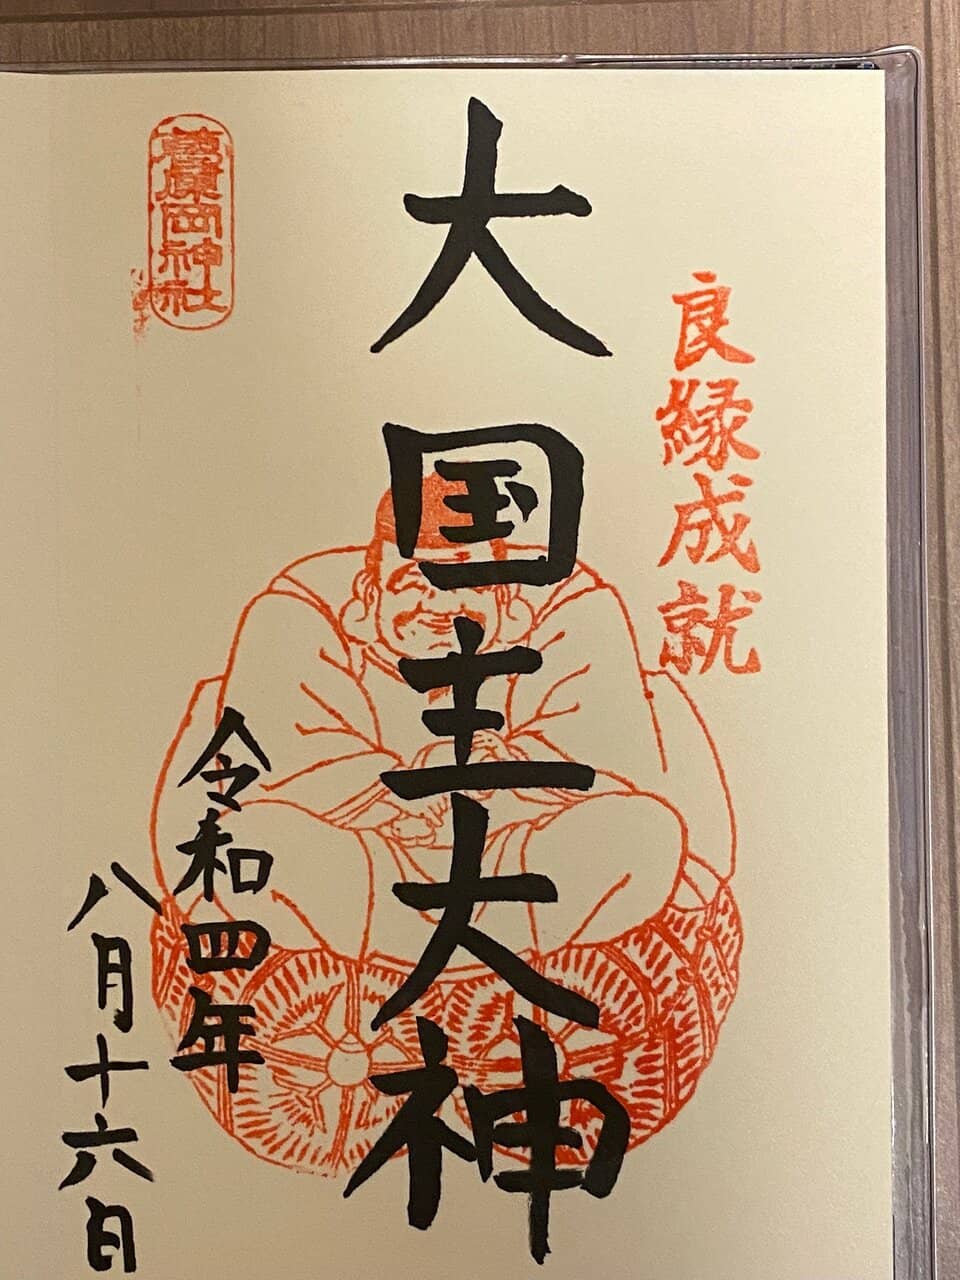 良縁成就
大国主大神
葛原岡神社
令和四年
八月十六日